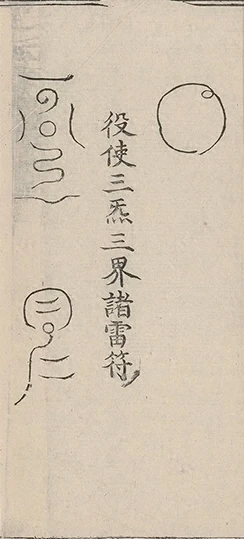 役使三炁三界諸雷符